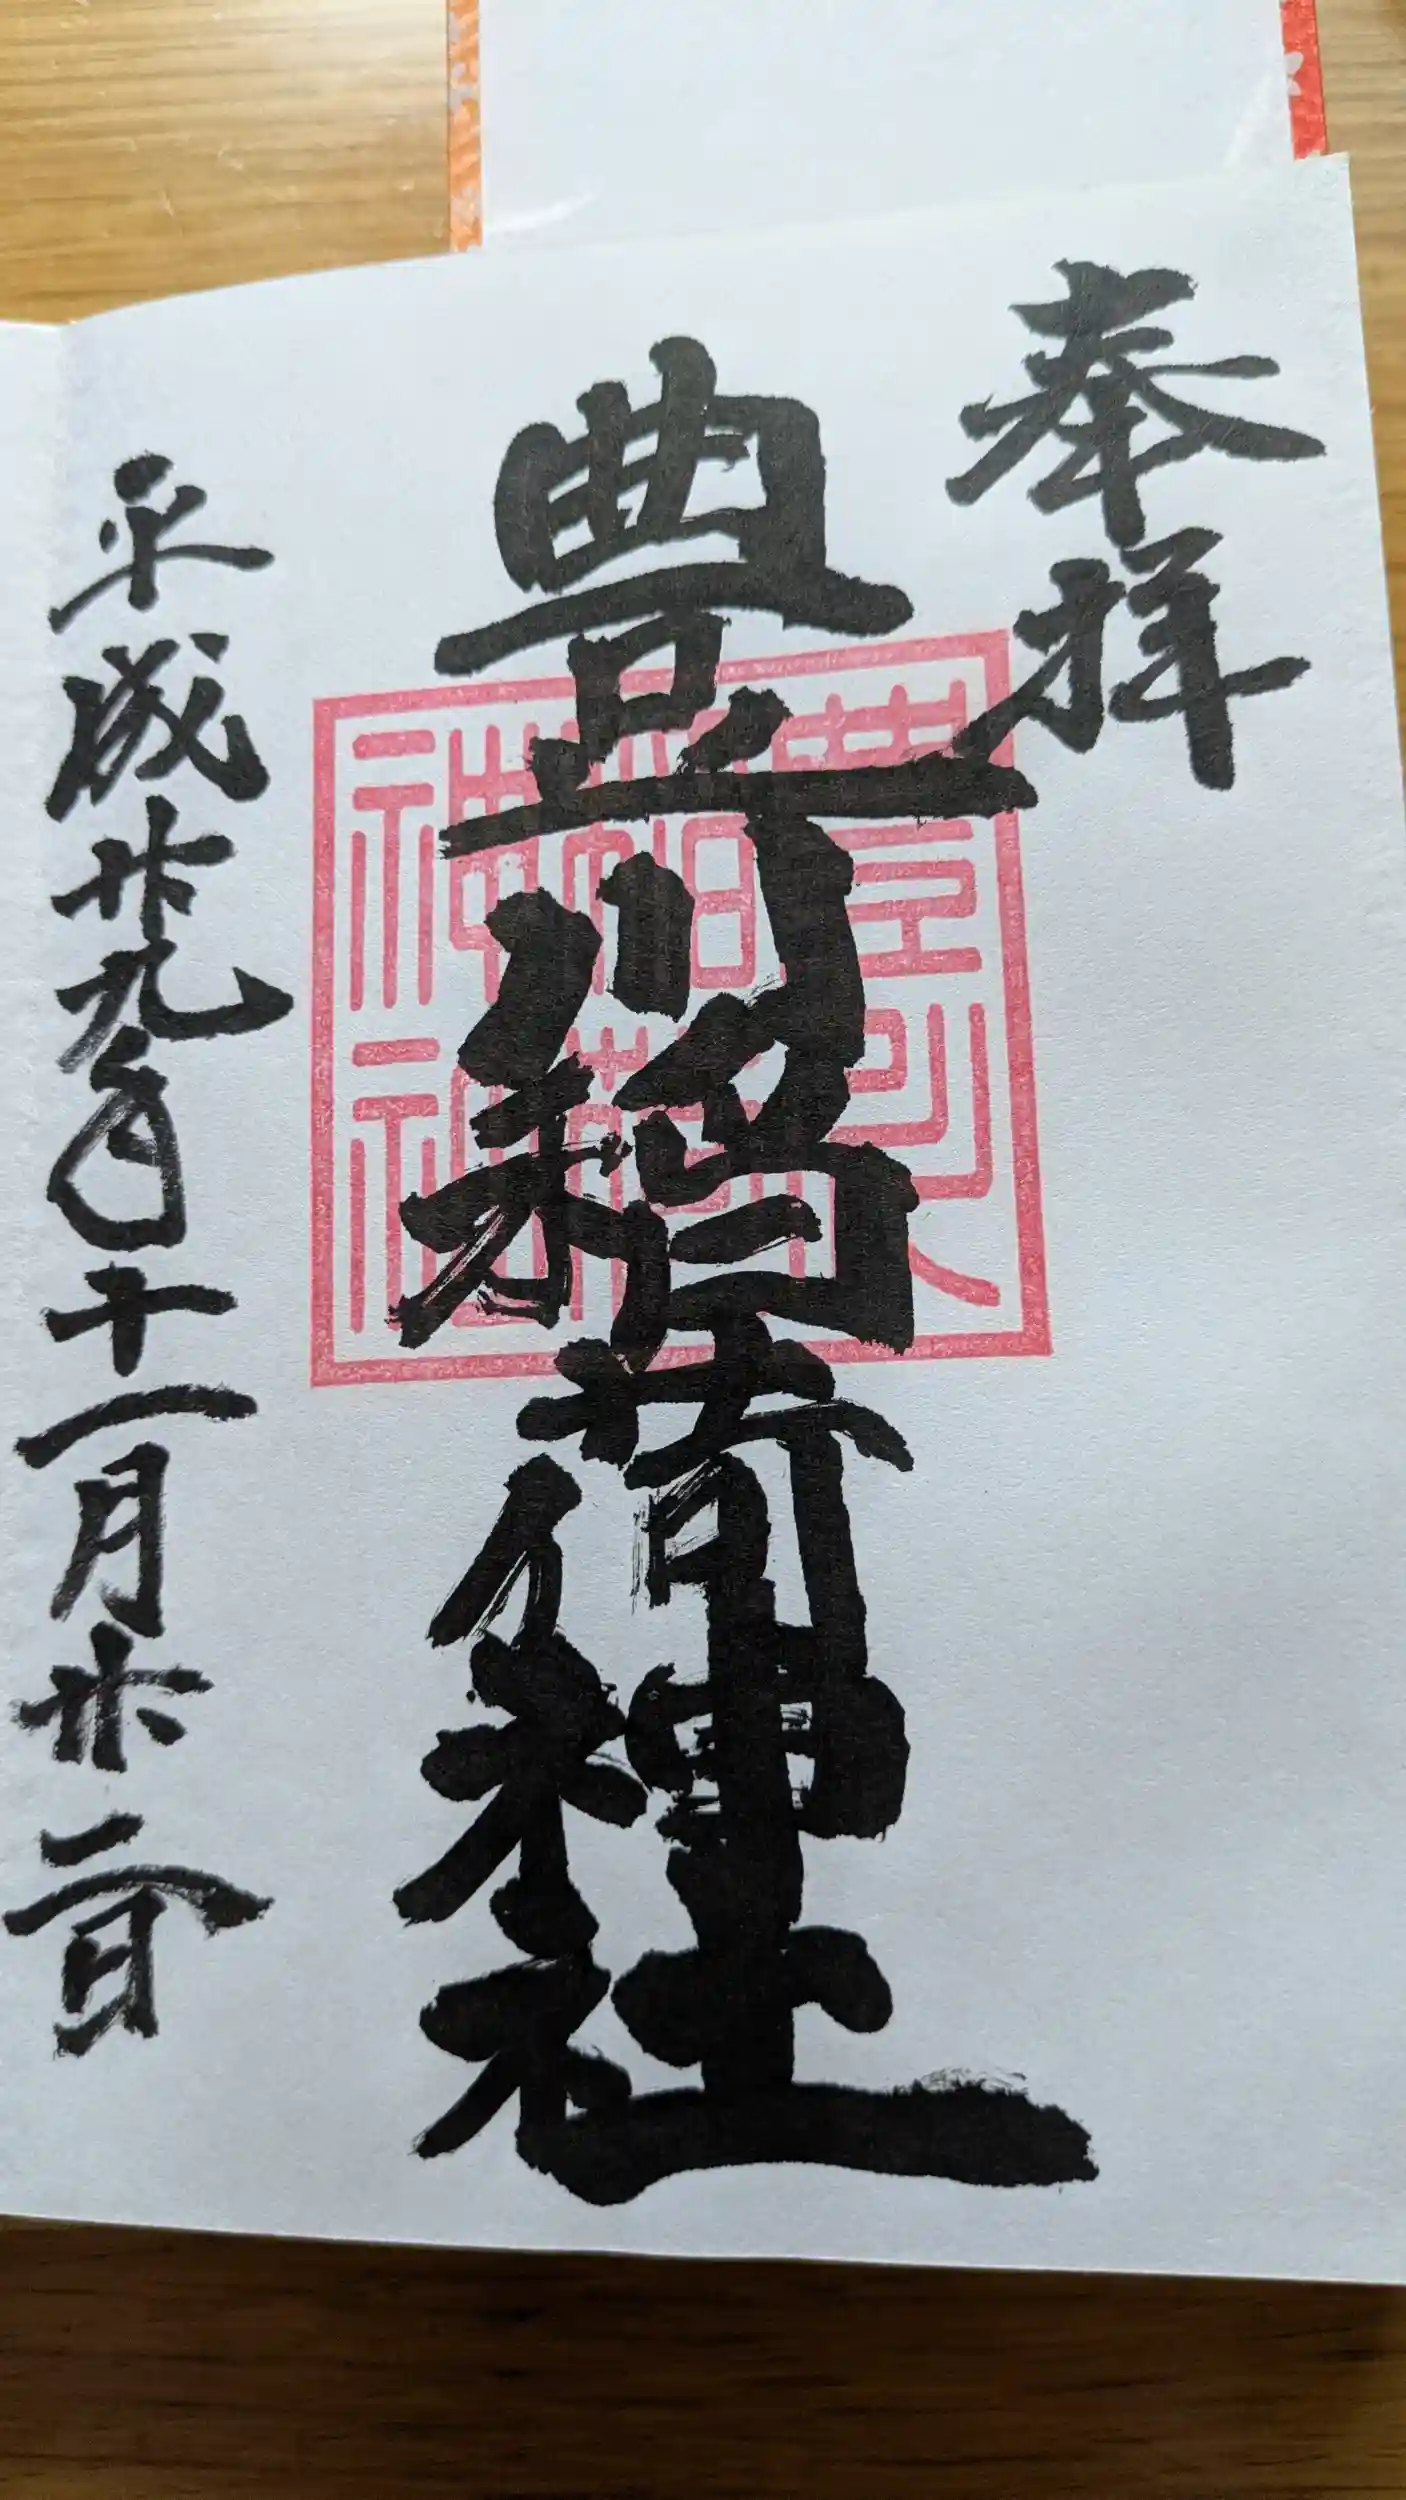 奉拝
豊川稲荷神社
稲荷
神社
平成廿九年十一月廿二日